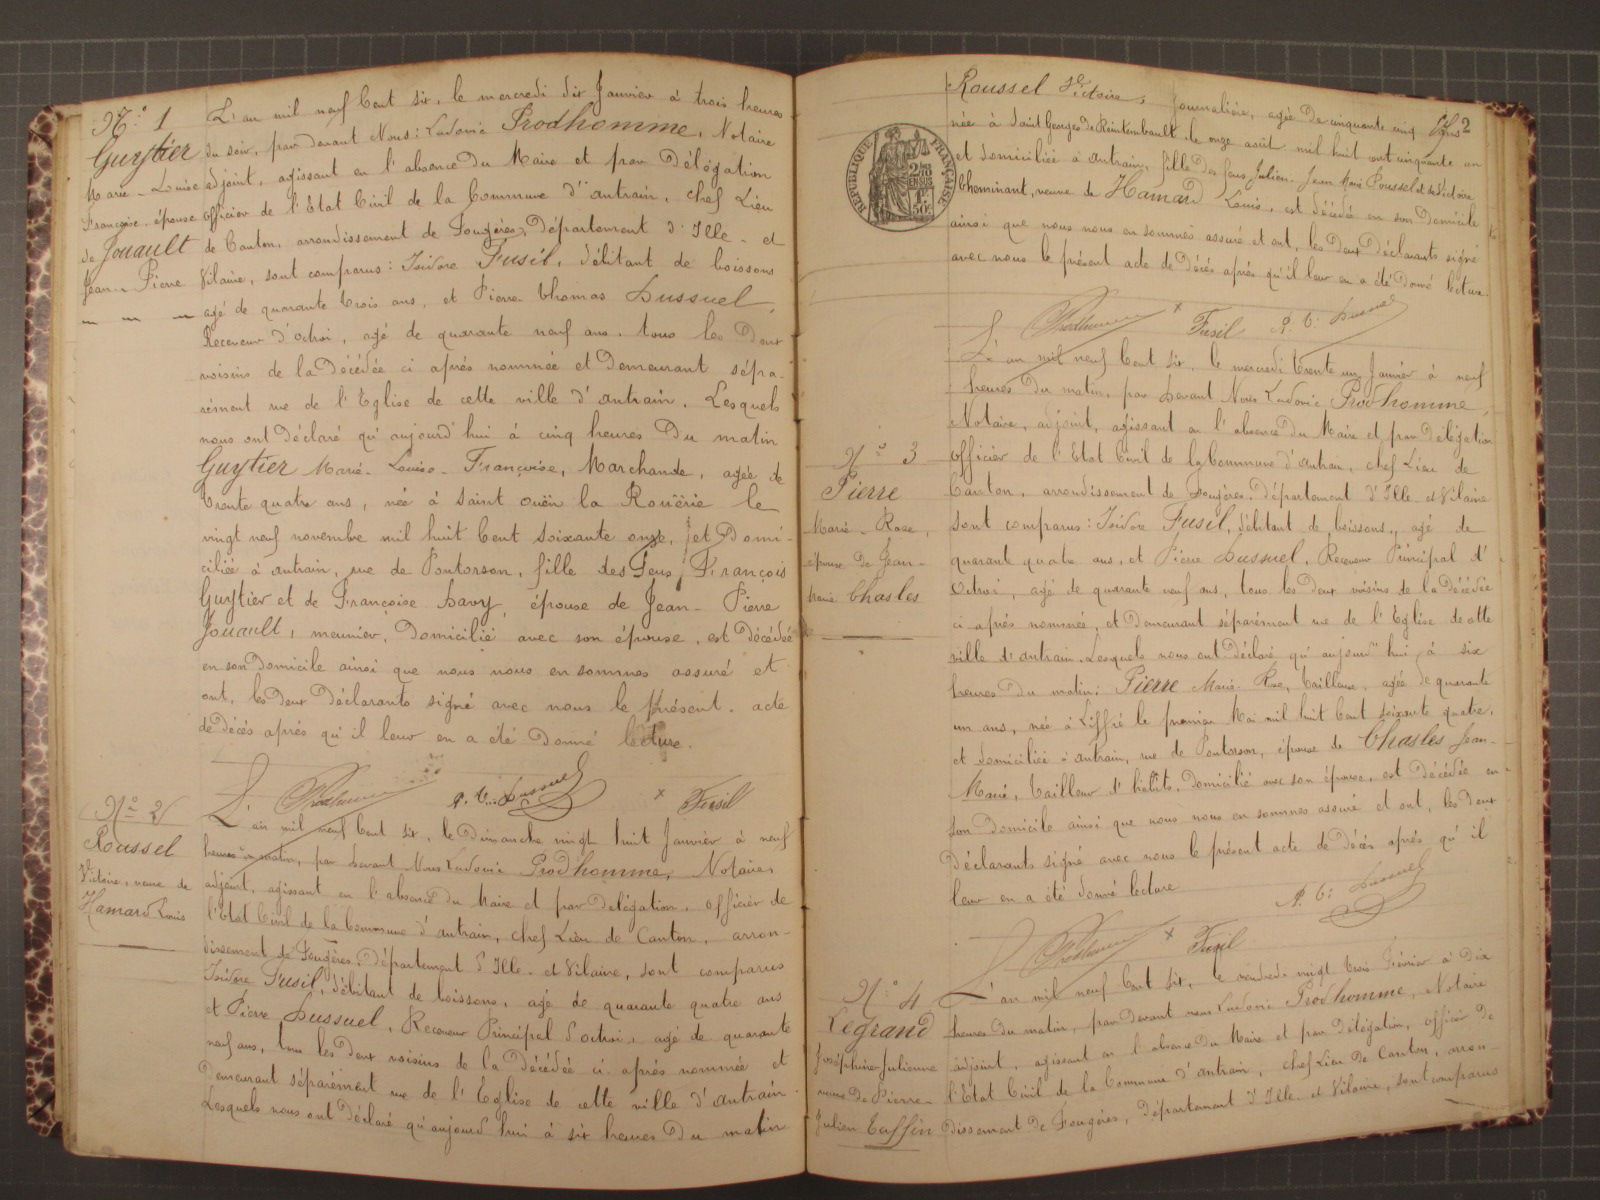 N° 1
Guytier
Marie - Louise
Françoise, épouse
de Jouault
Jean - Pierre
L'an mil neuf Cent six, le mercredi dix Janvier à trois heures
du soir, par devant Nous: Ludovic Prodhomme, Notaire
adjoint, agissant en l'absence du Maire et par Délégation
officier de l'Etat Civil de la Commune d'antrain, chef Lieu
de Canton, arrondissement de Fougères, Département d'Ille - et
Vilaine, sont comparus: Isidore Fusil, débitant de boissons
agé de quarante trois ans, et Pierre Thomas Dussuel,
Receveur d'octroi, agé de quarante neuf ans, tous les deux
voisins de la Décédée ci après nommée et Demeurant sépa-
rément rue de l'Eglise de cette ville d'antrain. Lesquels
nous ont Déclaré qu'aujourd'hui à cinq heures Du matin
Guytier Marie - Louise - Françoise, Marchande, agée de
trente quatre ans, née à Saint ouën la Rouërie le
vingt neuf novembre mil huit Cent soixante onze, et Domi-
ciliée à antrain, rue de Pontorson, fille des Feus François
Guytier et de Françoise Davy, épouse de Jean - Pierre
Jouault, meunier, Domicilié avec son épouse, est Décédée
en son Domicile ainsi que nous nous en sommes assuré et
ont, les Deux Déclarants signé avec nous le présent acte
de Décès après qu'il leur en a été Donné lecture.
Prodhomme P. T. Dussuel Fusil
N° 2
Roussel
Victoire, veuve de
Hamard Louis
L'an mil neuf Cent six, le Dimanche vingt huit Janvier à neuf
heures du matin, par Devant Nous Ludovic Prodhomme, Notaire
adjoint, agissant en l'absence du Maire et par Délégation, officier de
l'Etat Civil de la Commune d'antrain, chef Lieu de Canton, arron-
dissement de Fougères, Département d'Ille - et Vilaine, sont comparus
Isidore Fusil, débitant de boissons, agé de quarante quatre ans
et Pierre Dussuel, Receveur Principal d'octroi, agé de quarante
neuf ans, tous les Deux voisins de la Décédée ci après nommée et
Demeurant séparément rue de l'Eglise de cette ville d'antrain.
Lesquels nous ont Déclaré qu'aujourd'hui à six heures Du matin
2
RÉPUBLIQUE FRANÇAISE
2/10
EN SUS
1F
50c
Roussel Victoire, Journalière, agée De cinquante cinq ans
née à Saint Georges de Reintembault, le onze août mil huit cent cinquante un
et Domiciliée à antrain, fille des feus Julien - Jean Marie Roussel et de Victoire
Cheminant, veuve de Hamard Louis, est Décédée en son Domicile
ainsi que nous nous en sommes assuré et ont, les Deux Déclarants signé
avec nous le présent acte de Décès après qu'il leur en a été Donné lecture.
Prodhomme Fusil P. T. Dussuel
N° 3
Pierre
Marie - Rose,
épouse de Jean -
Marie Chasles
L'an mil neuf Cent six, le mercredi trente un Janvier à neuf
heures Du matin, par Devant Nous Ludovic Prodhomme,
Notaire, adjoint, agissant en l'absence Du Maire et par Délégation
officier de l'Etat Civil de la Commune d'antrain, chef Lieu de
Canton, arrondissement de Fougères, Département d'Ille - et Vilaine
sont comparus: Isidore Fusil, débitant de boissons, agé de
quarante quatre ans, et Pierre Dussuel, Receveur Principal d'
octroi, agé de quarante neuf ans, tous les deux voisins de la Décédée
ci après nommée, et Demeurant séparément rue de l'Eglise de cette
ville d'antrain. Lesquels nous ont Déclaré qu'aujourd'hui à six
heures Du matin: Pierre Marie - Rose, tailleuse, agée de quarante
un ans, née à Liffré le premier Mai mil huit Cent soixante quatre,
et Domiciliée à antrain, rue de Pontorson, épouse de Chasles Jean -
Marie, tailleur d'habits, Domicilié avec son épouse, est Décédée en
son Domicile ainsi que nous nous en sommes assuré et ont, les Deux
Déclarants signé avec nous le présent acte de Décès après qu'il
leur en a été Donné lecture
P. T. Dussuel
Prodhomme Fusil
N° 4
Legrand
Joséphine Julienne
veuve de Pierre -
Julien Taffin
L'an mil neuf Cent six, le vendredi vingt trois Février à Dix
heures du matin, par devant nous Ludovic Prodhomme, Notaire
adjoint, agissant en l'absence Du Maire et par Délégation, officier de
l'Etat Civil de la Commune d'antrain, chef Lieu De Canton, arron-
dissement De Fougères, Département d'Ille - et Vilaine, sont comparus